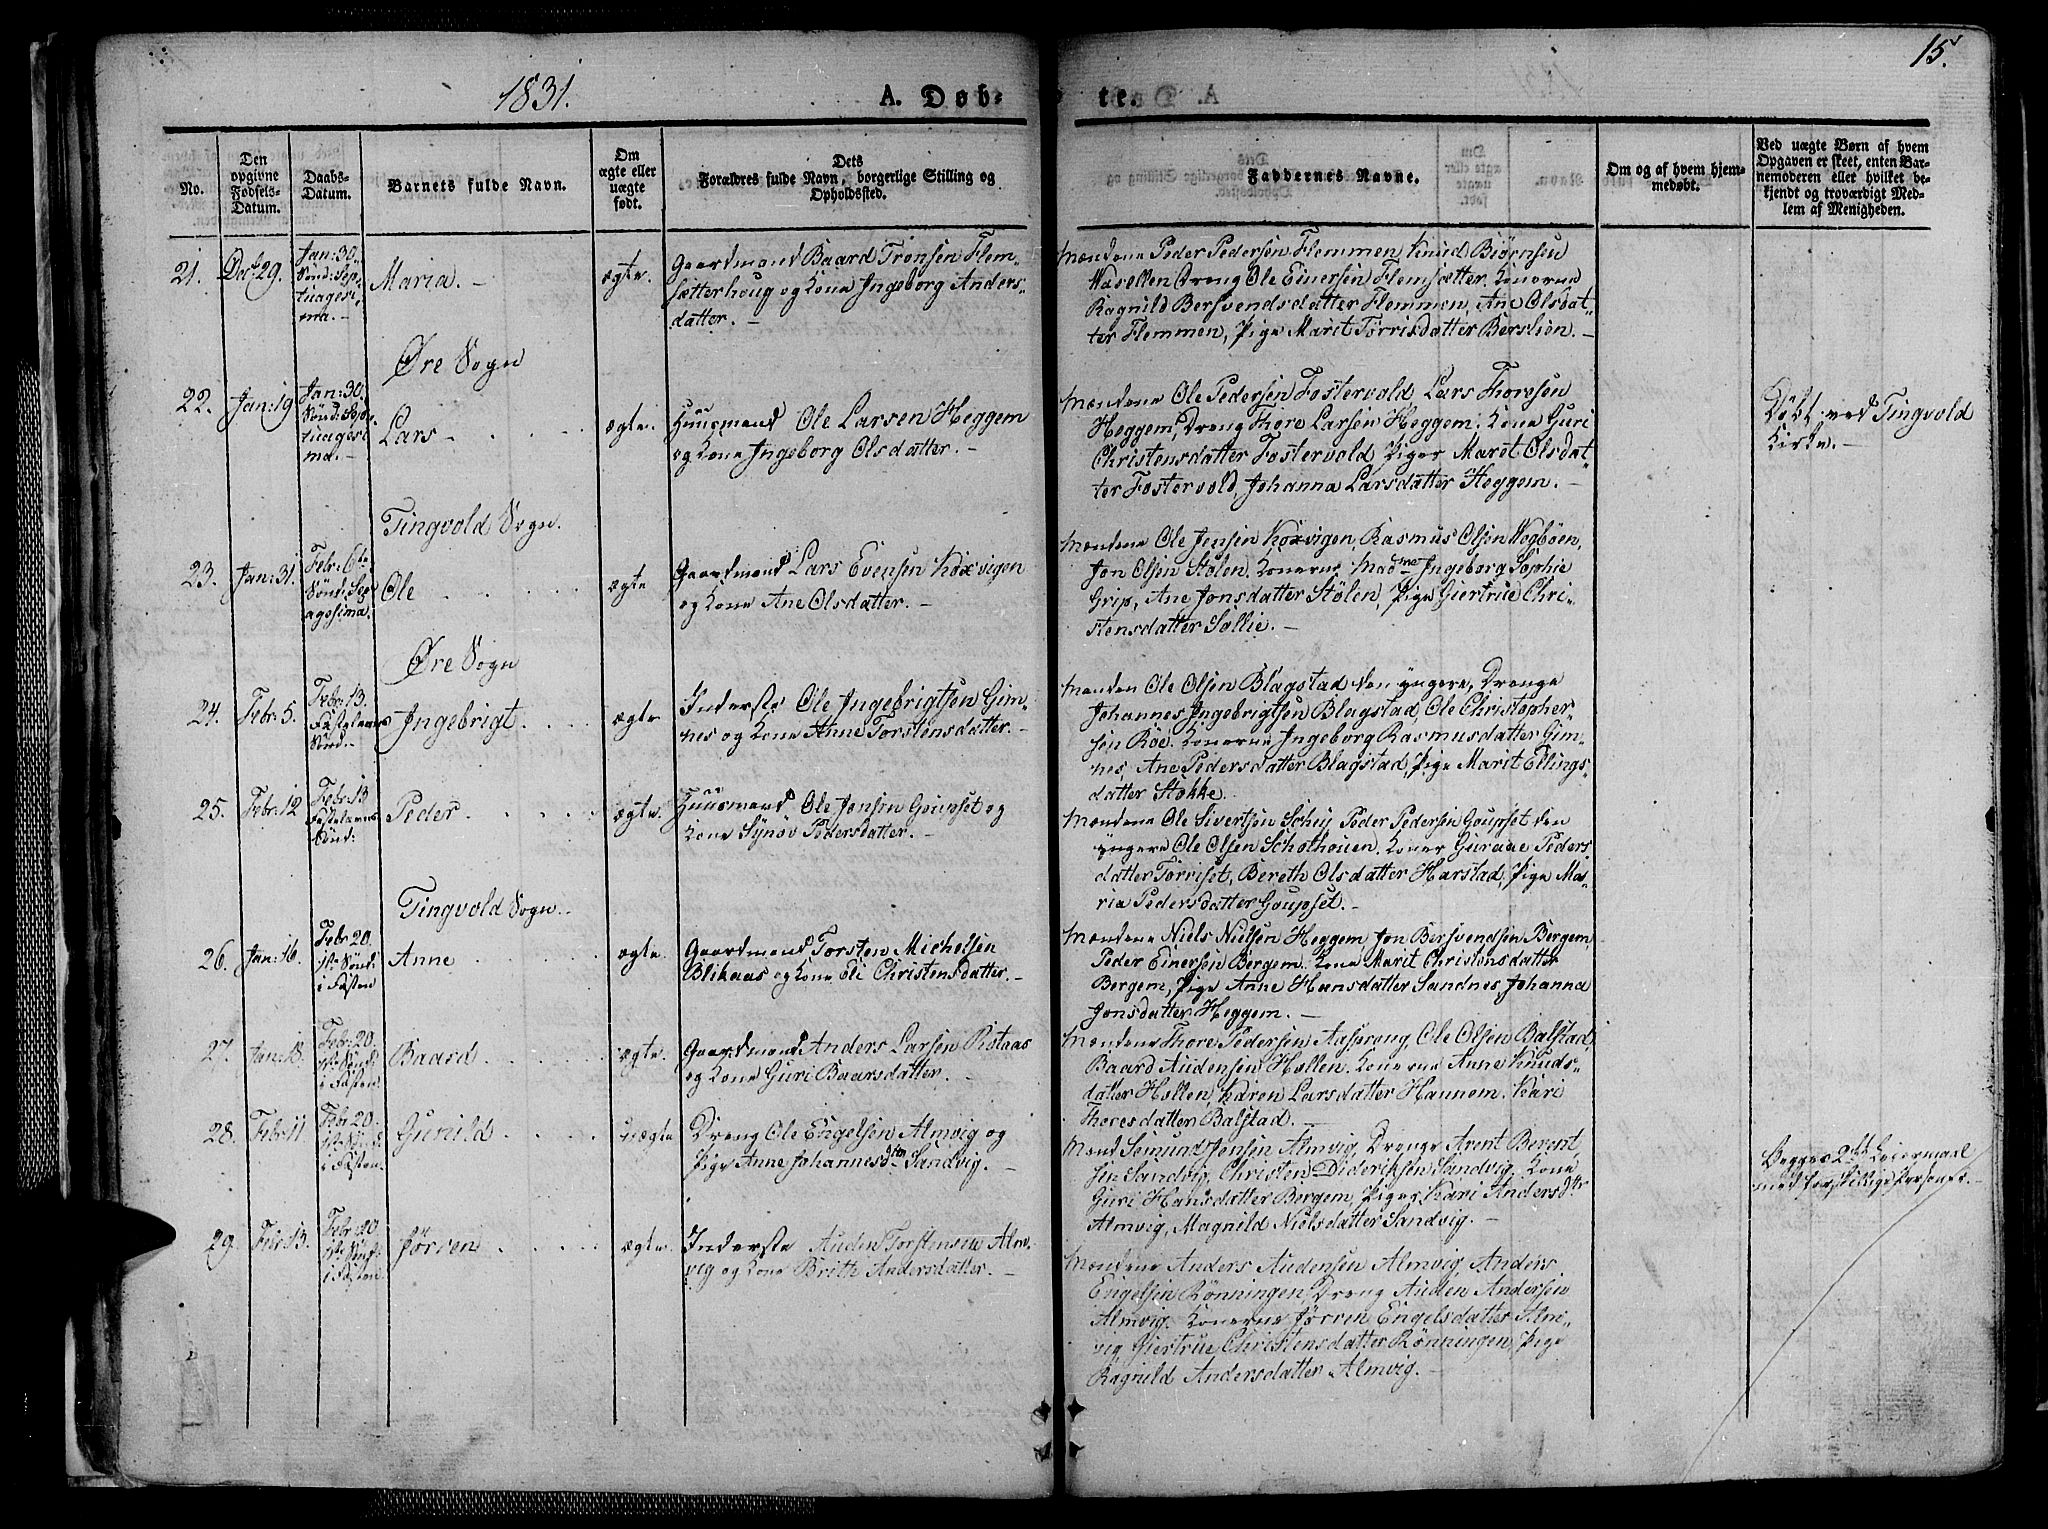 15.
1831.
A. Døb-
te.
No.
Den
opgivne
Fødsels-
Datum.
Daabs-
Datum.
Barnets fulde Navn.
Om
ægte eller
uægte
født.
Dets
Forældres fulde Navn, borgerlige Stilling og
Opholdssted.
Faddernes Navne.
Om og af hvem hjem-
medøbt.
Ved uægte Børn af hvem
Opgaven er skeet, enten Bar-
nemoderen eller hvilket be-
kjendt og troværdigt Med-
lem af Menigheden.
21.
Decb. 29.
Jan: 30.
Sönd: Sep-
tuagesi-
ma. -
Maria. -
ægte.
Gaardmand Baard Trönsen Flem-
sætterhoug og Kone Ingeborg Anders-
datter. -
Mændene Peder Pedersen Flemmen, Knud Biörnsen
Dreng Ole Einersen Flemsætter. Konerne
Ragnild Bersvendsdatter Flemmen, Ane Olsdat-
ter Flemmen, Pige Marit Torrisdatter Berslien. -
Øre Sogn
22.
Jan: 19
Jan: 30.
Sönd: Sep-
tuagesi
ma. -
Lars -
ægte.
Huusmand Ole Larsen Heggem
og Kone Ingeborg Olsdatter. -
Mændene Ole Pedersen Fostervold, Lars Thoresen
Heggem, Dreng Thore Larsen Heggem. Kone Guri
Christensdatter Fostervold Piger Marit Olsdat-
ter Fostervold, Johanna Larsdatter Heggem. -
Döbt ved Tingvold
Kirke. -
Tingvold Sogn.
23.
Jan: 31.
Febr: 6te
Sönd: Sex
agesima.
Ole
ægte
Gaardmand Lars Evensen Koxvigen
og Kone Ane Olsdatter. -
Mændene Ole Jensen Koxvigen, Rasmus Olsen Wegböen,
Jon Olsen Stölen, Konerne Madme Ingeborg Sophie
Grip, Ane Jonsdatter Stölen, Pige Giertrue Chri-
stensdatter Sollie. -
Øre Sogn
24.
Febr: 5.
Febr: 13.
Fastelavns
Sönd. -
Ingebrigt.
ægte
Inderste Ole Ingebrigtsen Gim-
nes og Kone Anne Torstensdatter. -
Manden Ole Olsen Blagstad den yngere, Drenge
Johannes Ingebrigtsen Blagstad, Ole Christopher-
sen Röe. Konerne Ingeborg Rasmusdatter Gim-
nes, Ane Pedersdatter Blagstad, Pige Marit Ellings-
datter Stokke.
25.
Febr: 12
Febr: 13
Fastelavns
Sönd:
Peder
ægte.
Huusmand Ole Jonsen Goupset og
Kone Synöv Pedersdatter. -
Mændene Ole Sivertsen Schei, Peder Pedersen Goupset den
yngere Ole Olsen Scholhouen. Koner Guraae Peders-
datter Torriset, Bereth Olsdatter Harstad, Pige Ma-
ria Pedersdatter Goupset. -
Tingvold Sogn.
26.
Jan: 16.
Febr 20.
1ste Sönd:
i Fasten
Anne
ægte.
Gaardmand Torsten Michelsen
Blikaas og Kone Eli Christensdatter. -
Mændene Niels Nielsen Heggem, Jon Bersvendsen Bergem,
Peder Einersen Bergem. Kone Marit Christensdatter
Bergem, Pige Anne Hansdatter Sandnes, Johanna
Jonsdatter Heggem. -
27.
Jan: 18.
Febr: 20.
1ste Sönd:
i Fasten
Baard.
ægte.
Gaardmand Anders Larsen Rotaas
og Kone Guri Baarsdatter. -
Mændene Thore Pedersen Aasprong, Ole Olsen Balstad,
Baard Audensen Hollen. Konerne Anne Knuds-
datter Hollen, Karen Larsdatter Hannem. Kari
Thoresdatter Balstad. -
28.
Febr: 11.
Febr 20.
1ste Sönd
i Fasten.
Gunild
uægte
Dreng Ole Engelsen Almvig og
Pige Anne Johannesdtr Sandvig. -
Mand Semund Jonsen Almvig, Drenge Arent Berent-
sen Sandvig, Christen Didriksen Sandvig. Kone
Guri Hansdatter Bergem, Piger Kari Andersdtr
Almvig, Magnild Nielsdatter Sandvig. -
Begges 2det Leiermaal
med forskiellige Personer. -
29.
Febr: 13.
Febr: 20
1ste Sönd:
i Fasten
Jörren
ægte.
Inderste Auden Torstensen Alm-
vig og Kone Brith Andersdatter. -
Mændene Anders Audensen Almvig, Anders
Engelsen Rönningen, Dreng Auden Andersen
Almvig. Konerne Jörren Engelsdatter Alm-
vig Giertrue Christensdatter Rönningen, Pige
Ragnild Andersdatter Almvig. -